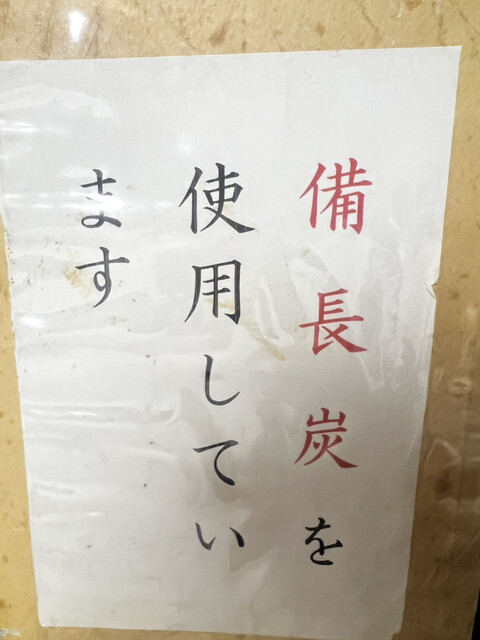 備長炭を
使用してい
ます